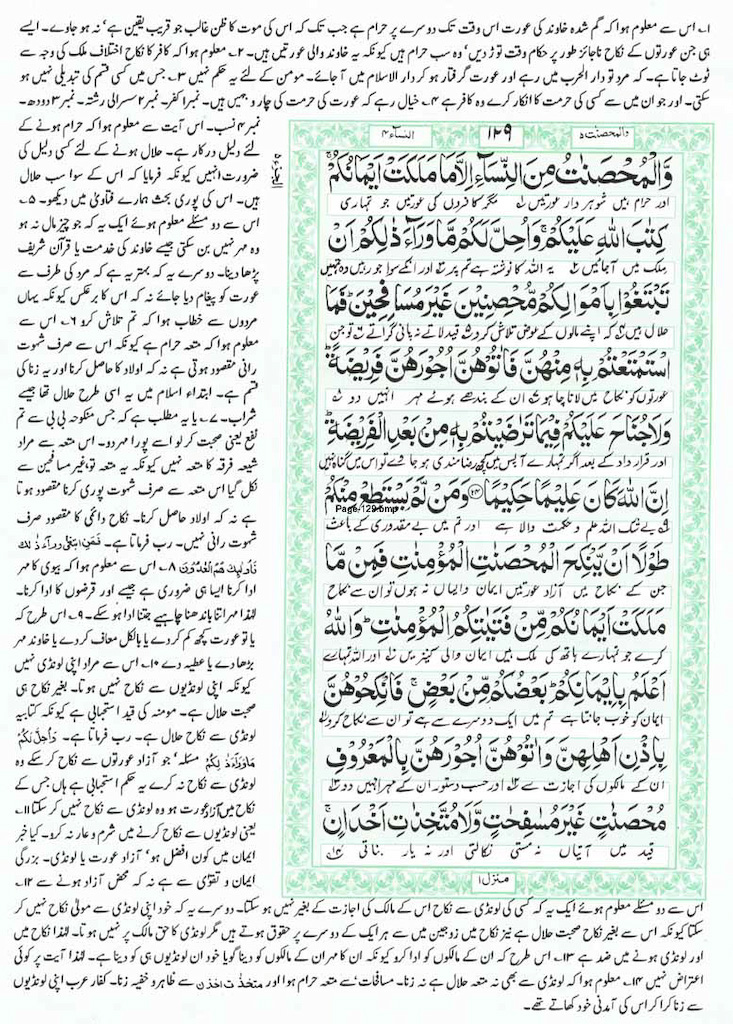 ۱۔ اس سے معلوم ہوا کہ گم شدہ خاوند کی عورت اس وقت تک دوسرے پر حرام ہے جب تک کہ اس کی موت کا ظن غالب جو قریب یقین ہے‘ نہ ہو جاوے۔ ایسے
ہی جن عورتوں کے نکاح ناجائز طور پر حکام وقت توڑ دیں‘ وہ سب حرام ہیں کیونکہ یہ خاوند والی عورتیں ہیں۔ ۲۔ معلوم ہوا کہ کافر کا نکاح اختلاف ملک کی وجہ سے
ٹوٹ جاتا ہے۔ کہ مرد تو دار الحرب میں رہے اور عورت گرفتار ہو کر دار الاسلام میں آ جائے۔ مومن کے لئے یہ حکم نہیں ۳۔ جس میں کسی قسم کی تبدیلی نہیں ہو
سکتی۔ اور جو ان میں سے کسی کی حرمت کا انکار کرے وہ کافر ہے ۴۔ خیال رہے کہ عورت کی حرمت کی چار وجہیں ہیں۔ نمبر۱ کفر۔ نمبر۲ سسرالی رشتہ۔ نمبر۳ دودھ۔
نمبر ۴ نسب۔ اس آیت سے معلوم ہوا کہ حرام ہونے کے
لئے دلیل درکار ہے۔ حلال ہونے کے لئے کسی دلیل کی
ضرورت نہیں کیونکہ فرمایا کہ اس کے سوا سب حلال
ہیں۔ اس کی پوری بحث ہمارے فتاویٰ میں دیکھو۔ ۵۔
اس سے دو مسئلے معلوم ہوئے ایک یہ کہ جو چیز مال نہ ہو
وہ مہر نہیں بن سکتی جیسے خاوند کی خدمت یا قرآن شریف
پڑھا دینا۔ دوسرے یہ کہ بہتر یہ ہے کہ مرد کی طرف سے
عورت کو پیغام دیا جائے نہ کہ اس کا برعکس کیونکہ یہاں
مردوں سے خطاب ہوا کہ تم تلاش کرو ۶۔ اس سے
معلوم ہوا کہ متعہ حرام ہے کیونکہ اس سے صرف شہوت
رانی مقصود ہوتی ہے نہ کہ اولاد کا حاصل کرنا اور یہ زنا کی
قسم ہے۔ ابتداء اسلام میں یہ اسی طرح حلال تھا جیسے
شراب۔ ۷۔ یا یہ مطلب ہے کہ جس منکوحہ بی بی سے تم
نفع یعنی صحبت کر لو اسے پورا مہر دو۔ اس متعہ سے مراد
شیعہ فرقہ کا متعہ نہیں کیونکہ یہ متعہ تو غیر مسافحین سے
نکل گیا اس متعہ سے صرف شہوت پوری کرنا مقصود ہوتا
ہے نہ کہ اولاد حاصل کرنا۔ نکاح دائمی کا مقصود صرف
شہوت رانی نہیں۔ رب فرماتا ہے۔ فَمَنِ ابْتَغٰی وَرَآءَ ذٰلِكَ
فَاُولٰٓئِكَ هُمُ الْعٰدُوْنَ ۸۔ اس سے معلوم ہوا کہ بیوی کا مہر
ادا کرنا ایسا ہی ضروری ہے جیسے اور قرضوں کا ادا کرنا۔
لہٰذا مہر اتنا باندھنا چاہیے جتنا ادا ہو سکے۔ ۹۔ اس طرح کہ
یا تو عورت کچھ کم کر دے یا بالکل معاف کر دے یا خاوند مہر
بڑھا دے یا عطیہ دے ۱۰۔ اس سے مراد اپنی لونڈی نہیں
کیونکہ اپنی لونڈیوں سے نکاح نہیں ہوتا۔ بغیر نکاح ہی
صحبت حلال ہے۔ مومنہ کی قید استحبابی ہے کیونکہ کتابیہ
لونڈی سے نکاح حلال ہے۔ رب فرماتا ہے۔ وَاُحِلَّ لَكُمْ
مَّا وَرَآءَ ذٰلِكُمْ مسئلہ‘ جو آزاد عورتوں سے نکاح کر سکے وہ
لونڈی سے نکاح نہ کرے یہ حکم استحبابی ہے ہاں جس کے
نکاح میں آزاد عورت ہو وہ لونڈی سے نکاح نہیں کر سکتا ۱۱۔
یعنی لونڈیوں سے نکاح کرنے میں شرم و عار نہ کرو۔ کیا خبر
ایمان میں کون افضل ہو‘ آزاد عورت یا لونڈی۔ بزرگی
ایمان و تقویٰ سے ہے نہ کہ محض آزاد ہونے سے ۱۲۔
والمحصنت ۵
۱۲۹
النساء ۴
وَّالْمُحْصَنٰتُ مِنَ النِّسَآءِ اِلَّا مَا مَلَكَتْ اَیْمَانُكُمْ ۚ
اور حرام ہیں شوہر دار عورتیں مگر کافروں کی عورتیں جو تمہاری
كِتٰبَ اللّٰهِ عَلَیْكُمْ ۚ وَاُحِلَّ لَكُمْ مَّا وَرَآءَ ذٰلِكُمْ اَنْ
ملک میں آجائیں یہ اللہ کا نوشتہ ہے تم پر اور انکے سوا جو رہیں وہ تمہیں
تَبْتَغُوْا بِاَمْوَالِكُمْ مُّحْصِنِیْنَ غَیْرَ مُسَافِحِیْنَ ؕ فَمَا
حلال ہیں کہ اپنے مالوں کے عوض تلاش کرو قید لاتے نہ پانی گراتے تو جن
اسْتَمْتَعْتُمْ بِهٖ مِنْهُنَّ فَاٰتُوْهُنَّ اُجُوْرَهُنَّ فَرِیْضَةً ؕ
عورتوں کو نکاح میں لانا چاہو ان کے بندھے ہوئے مہر انہیں دو
وَلَا جُنَاحَ عَلَیْكُمْ فِیْمَا تَرٰضَیْتُمْ بِهٖ مِنْ بَعْدِ الْفَرِیْضَةِ ؕ
اور قرار داد کے بعد اگر تمہارے آپس میں کچھ رضامندی ہو جائے تو اس میں گناہ نہیں
اِنَّ اللّٰهَ كَانَ عَلِیْمًا حَكِیْمًا ﴿۲۴﴾ وَمَنْ لَّمْ یَسْتَطِعْ مِنْكُمْ
Page-129.bmp
بے شک اللہ علم و حکمت والا ہے اور تم میں بے مقدوری کے باعث
طَوْلًا اَنْ یَّنْكِحَ الْمُحْصَنٰتِ الْمُؤْمِنٰتِ فَمِنْ مَّا
جن کے نکاح میں آزاد عورتیں ایمان والیاں نہ ہوں تو ان سے نکاح
مَلَكَتْ اَیْمَانُكُمْ مِّنْ فَتَیٰتِكُمُ الْمُؤْمِنٰتِ ؕ وَاللّٰهُ
کرے جو تمہارے ہاتھ کی ملک ہیں ایمان والی کنیزیں اور اللہ تمہارے
اَعْلَمُ بِاِیْمَانِكُمْ ؕ بَعْضُكُمْ مِّنْ بَعْضٍ ۚ فَانْكِحُوْهُنَّ
ایمان کو خوب جانتا ہے تم میں ایک دوسرے سے ہے تو ان سے نکاح کرو
بِاِذْنِ اَهْلِهِنَّ وَاٰتُوْهُنَّ اُجُوْرَهُنَّ بِالْمَعْرُوْفِ
ان کے مالکوں کی اجازت سے اور حسب دستور ان کے مہر انہیں دو
مُحْصَنٰتٍ غَیْرَ مُسٰفِحٰتٍ وَّلَا مُتَّخِذٰتِ اَخْدَانٍ ۚ
قید میں آتیاں نہ مستی نکالتی اور نہ یار بناتی
منزل ۱
اس سے دو مسئلے معلوم ہوئے ایک یہ کہ کسی کی لونڈی سے نکاح اس کے مالک کی اجازت کے بغیر نہیں ہو سکتا۔ دوسرے یہ کہ خود اپنی لونڈی سے مولیٰ نکاح نہیں کر
سکتا کیونکہ اس سے بغیر نکاح صحبت حلال ہے نیز نکاح میں زوجین میں سے ہر ایک کے دوسرے پر حقوق ہوتے ہیں مگر لونڈی کا حق مالک پر نہیں ہوتا۔ لہٰذا نکاح میں
اور لونڈی ہونے میں ضد ہے ۱۳۔ اس طرح کہ ان کے مالکوں کو ادا کرو کیونکہ ان کا مہر ان کے مالکوں کو دینا گویا خود ان لونڈیوں ہی کو دینا ہے۔ لہٰذا آیت پر کوئی
اعتراض نہیں ۱۴۔ معلوم ہوا کہ لونڈی سے بھی نہ متعہ حلال ہے نہ زنا۔ مسافحات‘ سے متعہ حرام ہوا اور متخذت اخدان سے ظاہر و خفیہ زنا۔ کفار عرب اپنی لونڈیوں
سے زنا کرا کر اس کی آمدنی خود کھاتے تھے۔